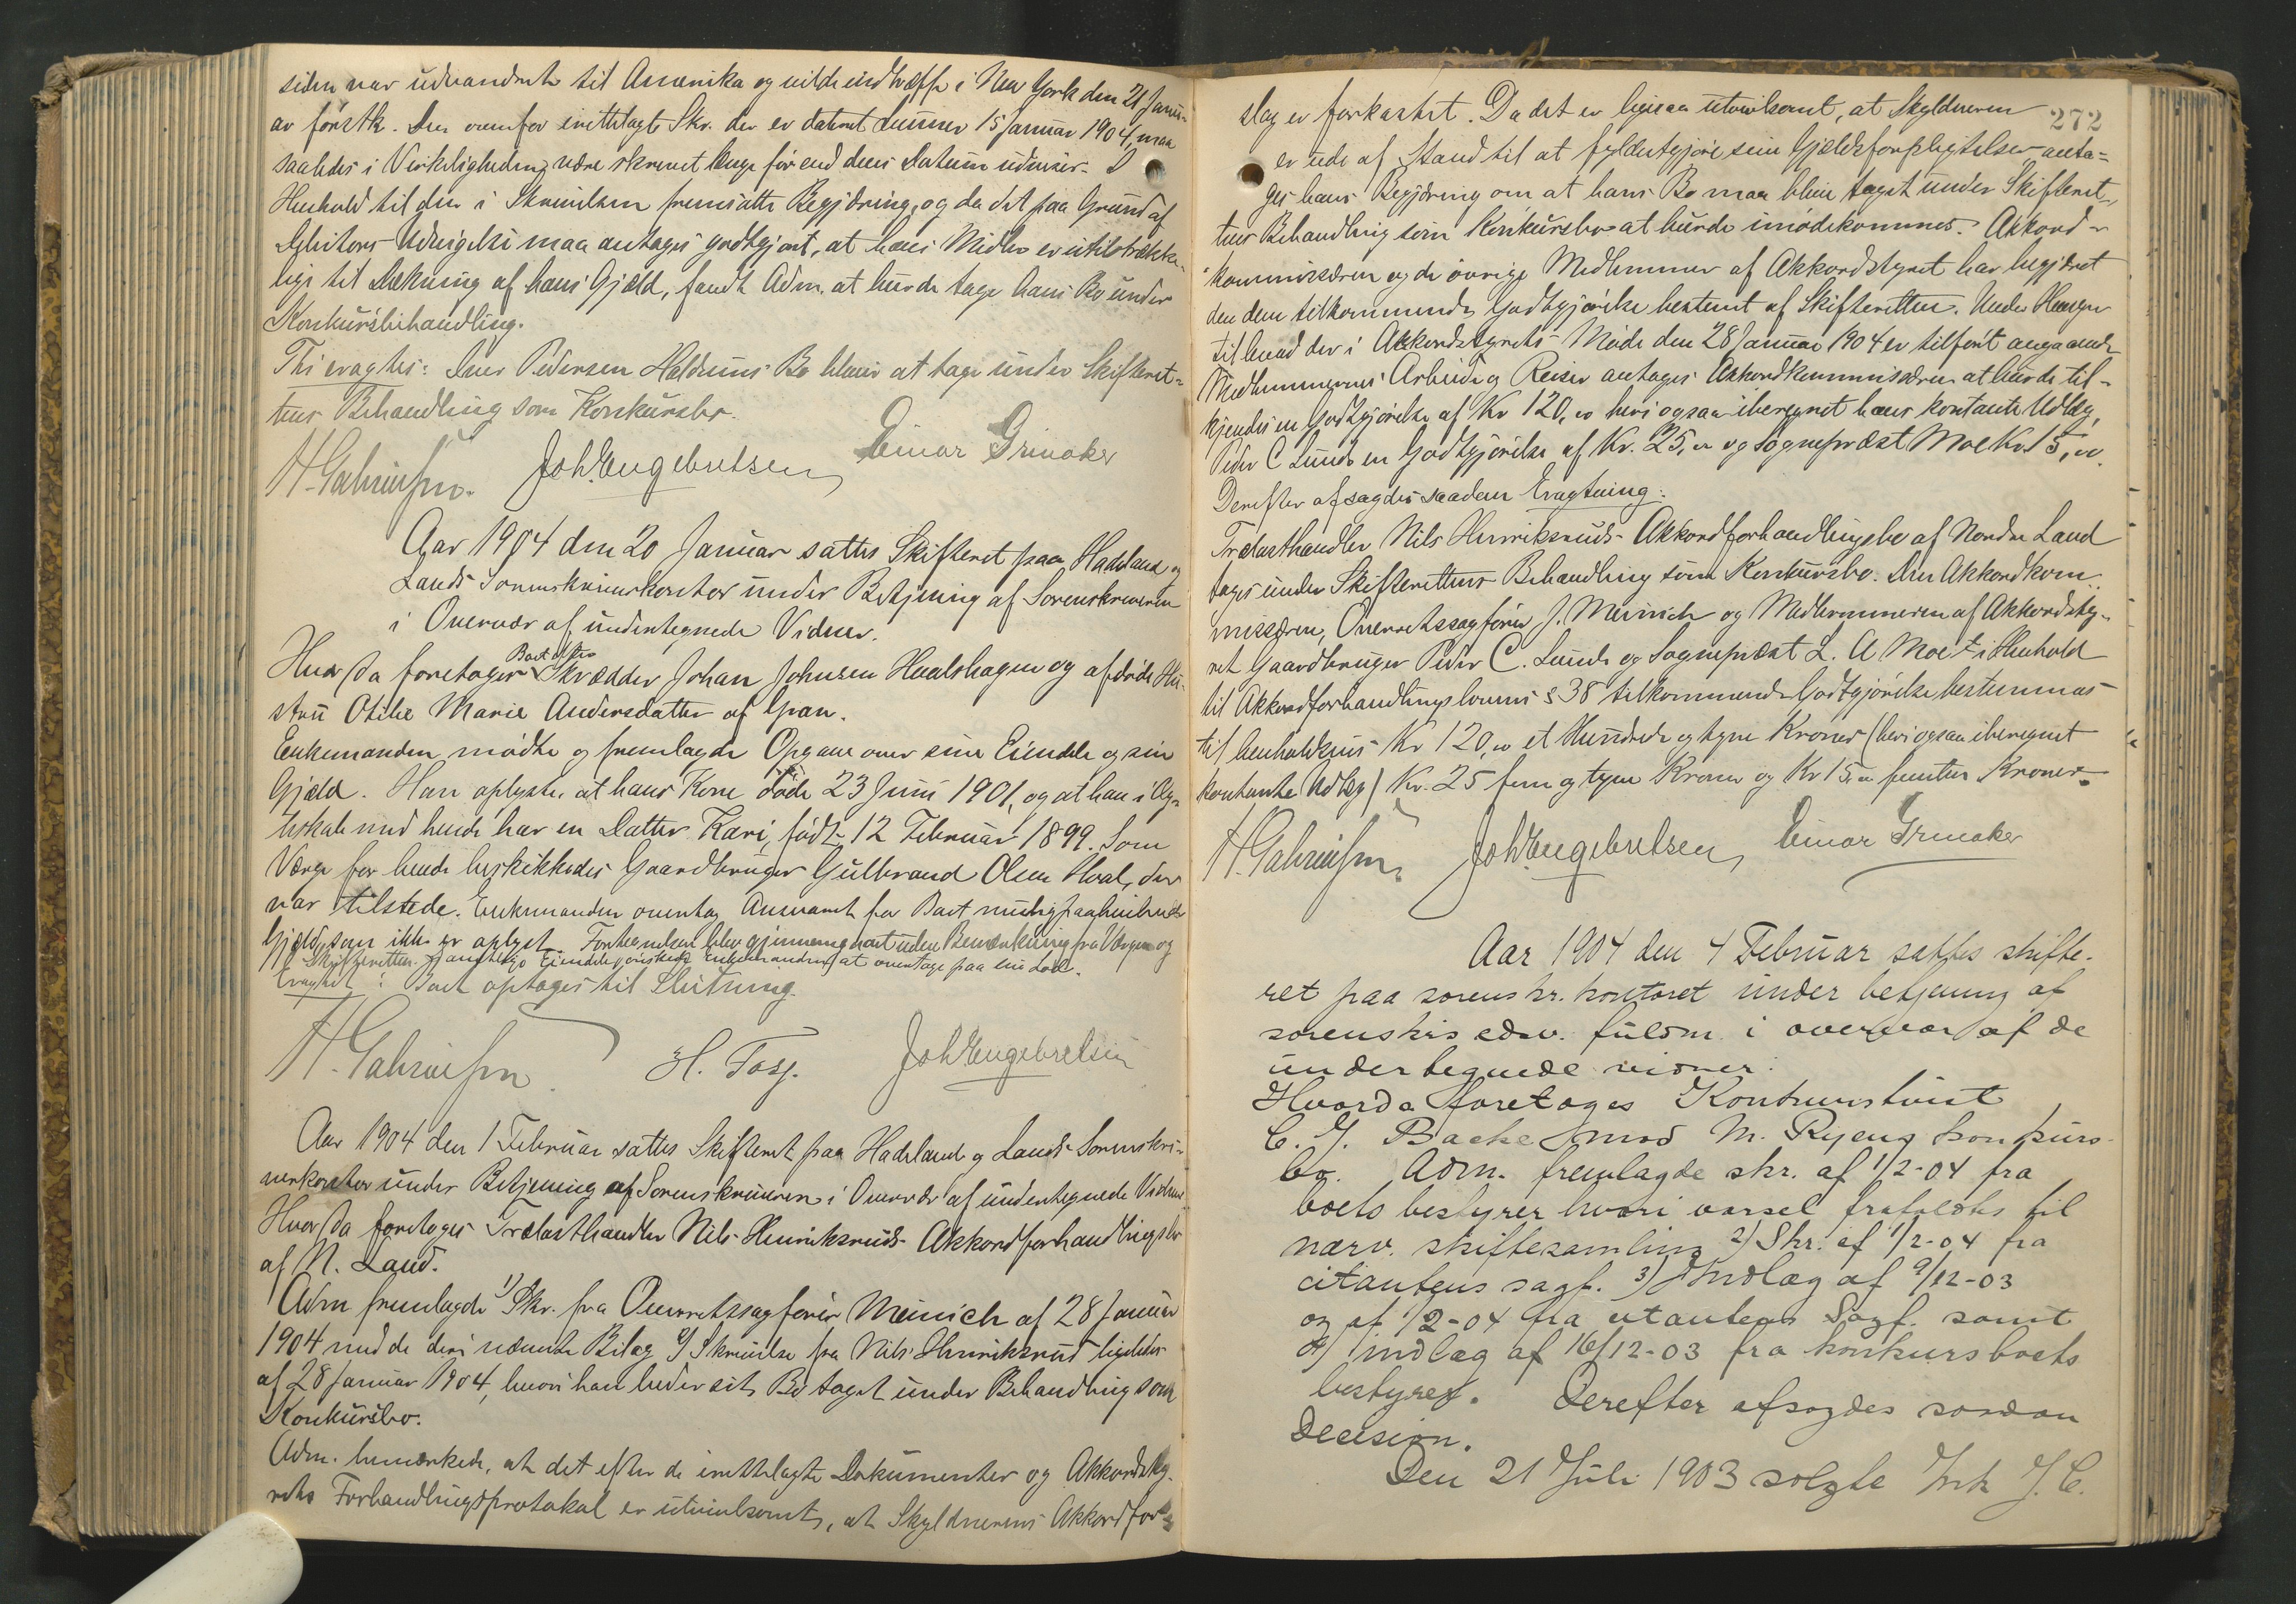 siden var udvandret til Amerika og vilde indtræffe i New York den 21 Janu-
ar førstk. Den ovenfor irettelagte Skr. der er dateret Lunner 15 Januar 1904, maa
saaledes i Virkeligheden være skrevet længe før end dens Datum udviser. I
Henhold til den i Skrivelsen fremsatte Begjæring, og da det paa Grund af
Debitors Udvigelse maa antages godtgjort, at hans Midler er utilstrække-
lige til Dækning af hans Gjæld, fandt Adm. at burde tage hans Bo under
Konkursbehandling.
Thi eragtes: Iver Pedersen Haldums Bo bliver at tage under Skifteret-
tens Behandling som Konkursbo.
H. Gabrielsen. Joh Engebretsen Einar Grinaker
Aar 1904 den 20 Januar sattes Skifteret paa Hadeland og
Lands Sorenskriverkontor under Betjening af Sorenskriveren
i Overvær af undertegnede Vidner.
Hvor da foretoges Boet efter Skrædder Johan Johnsen Hvalshagen og afdøde Hu-
stru Otilie Marie Andersdatter af Gran.
Enkemanden mødte og fremlagde Opgave over sine Eiendele og sin
Gjæld. Han oplyste, at hans Kone døde 23 Juni 1901, og at han i Æg-
teskab med hende har en Datter Kari, født 12 Februar 1899. Som
Værge for hende beskikkedes Gaardbruger Gulbrand Olsen Hval, der
var tilstede. Enkemanden overtog Ansvaret for Boet mulig paahvilende
Gjæld, som ikke er oplyst. Fortegnelsen blev gjennemgaaet uden Bemærkning fra Værgen og
Skifteretten. Samtlige Eiendele ønskede Enkemanden at overtage paa sin Lod.
Eragtet: Boet optages til Slutning.
H. Gabrielsen. H. Fosz. Joh Engebretsen
Aar 1904 den 1 Februar sattes Skifteret paa Hadeland og Lands Sorenskri-
verkontor under Betjening af Sorenskriveren i Overvær af undertegnede Vidner
Hvor da foretoges Trælasthandler Nils Henriksruds Akkordforhandlingsbo
af N. Land.
Adm fremlagde 1) Skr. fra Overretssagfører Meinich af 28 Januar
1904 med de deri nævnte Bilag 2) Skrivelse fra Nils Henriksrud ligeledes
af 28 Januar 1904, hvori han beder sit Bo taget under Behandling som
Konkursbo.
Adm. bemærkede, at det efter de irettelagte Dokumenter og Akkordsty-
rets Forhandlingsprotokol er utvivlsomt, at Skyldnerens Akkordfor-
272
slag er forkastet. Da det er ligesaa utvivlsomt, at Skyldneren
er ude af Stand til at fyldestgjøre sine Gjældsforpligtelser, anta-
ges hans Begjæring om at hans Bo maa blive taget under Skifteret-
tens Behandling som Konkursbo at burde imødekommes. Akkord-
kommissæren og de øvrige Medlemmer af Akkordstyret har begjæret
den dem tilkommende Godtgjørelse bestemt af Skifteretten. Under Hensyn
til hvad der i Akkordstyrets Møde den 28 Januar 1904 er tilført angaaende
Medlemmernes Arbeide og Reiser antages Akkordkommissæren at burde til-
kjendes en Godtgjørelse af Kr 120,00 heri ogsaa iberegnet hans kontante Udlæg,
Peder C Lunde en Godtgjørelse af Kr. 25,00 og Sogneprest Moe Kr. 15,00.
Derefter afsagdes saadan Eragtning:
Trælasthandler Nils Henriksruds Akkordforhandlingsbo af Nordre Land
tages under Skifterettens Behandling som Konkursbo. Den Akkordkom-
missæren, Overretssagfører J. Meinich og Medlemmerne af Akkordsty-
ret Gaardbruger Peder C. Lunde og Sogneprest L. A Moe i Henhold
til Akkordforhandlingslovens § 38 tilkommende Godtgjørelse bestemmes
til henholdsvis Kr 120,00 et Hundrede og tyve Kroner (heri ogsaa iberegnet
kontante Udlæg) Kr. 25 fem og tyve Kroner og Kr 15,00 femten Kroner.
H. Gabrielsen. Joh Engebretsen, Einar Grinaker
Aar 1904 den 4 Februar sattes skifte-
ret paa sorenskr. kontoret under betjening af
sorenskrs edsv. fuldm. i overvær af de
undertegnede vidner:
Hvorda foretoges Konkurstvist
C. J. Backe mod M. Ryeng konkurs-
bo. Adm. fremlagde skr. af 1/2-04 fra
boets bestyrer hvori varsel frafaldtes til
nærv. skiftesamling 2) Skr. af 1/2-04 fra
citantens sagf. 3) Indlæg af 9/12-03
og af 1/2-04 fra citantens Sagf. samt
4) indlæg af 16/12-03 fra konkursboets
bestyrer. Derefter afsagdes saadan
Decision.
Den 21 Juli 1903 solgte J. C.